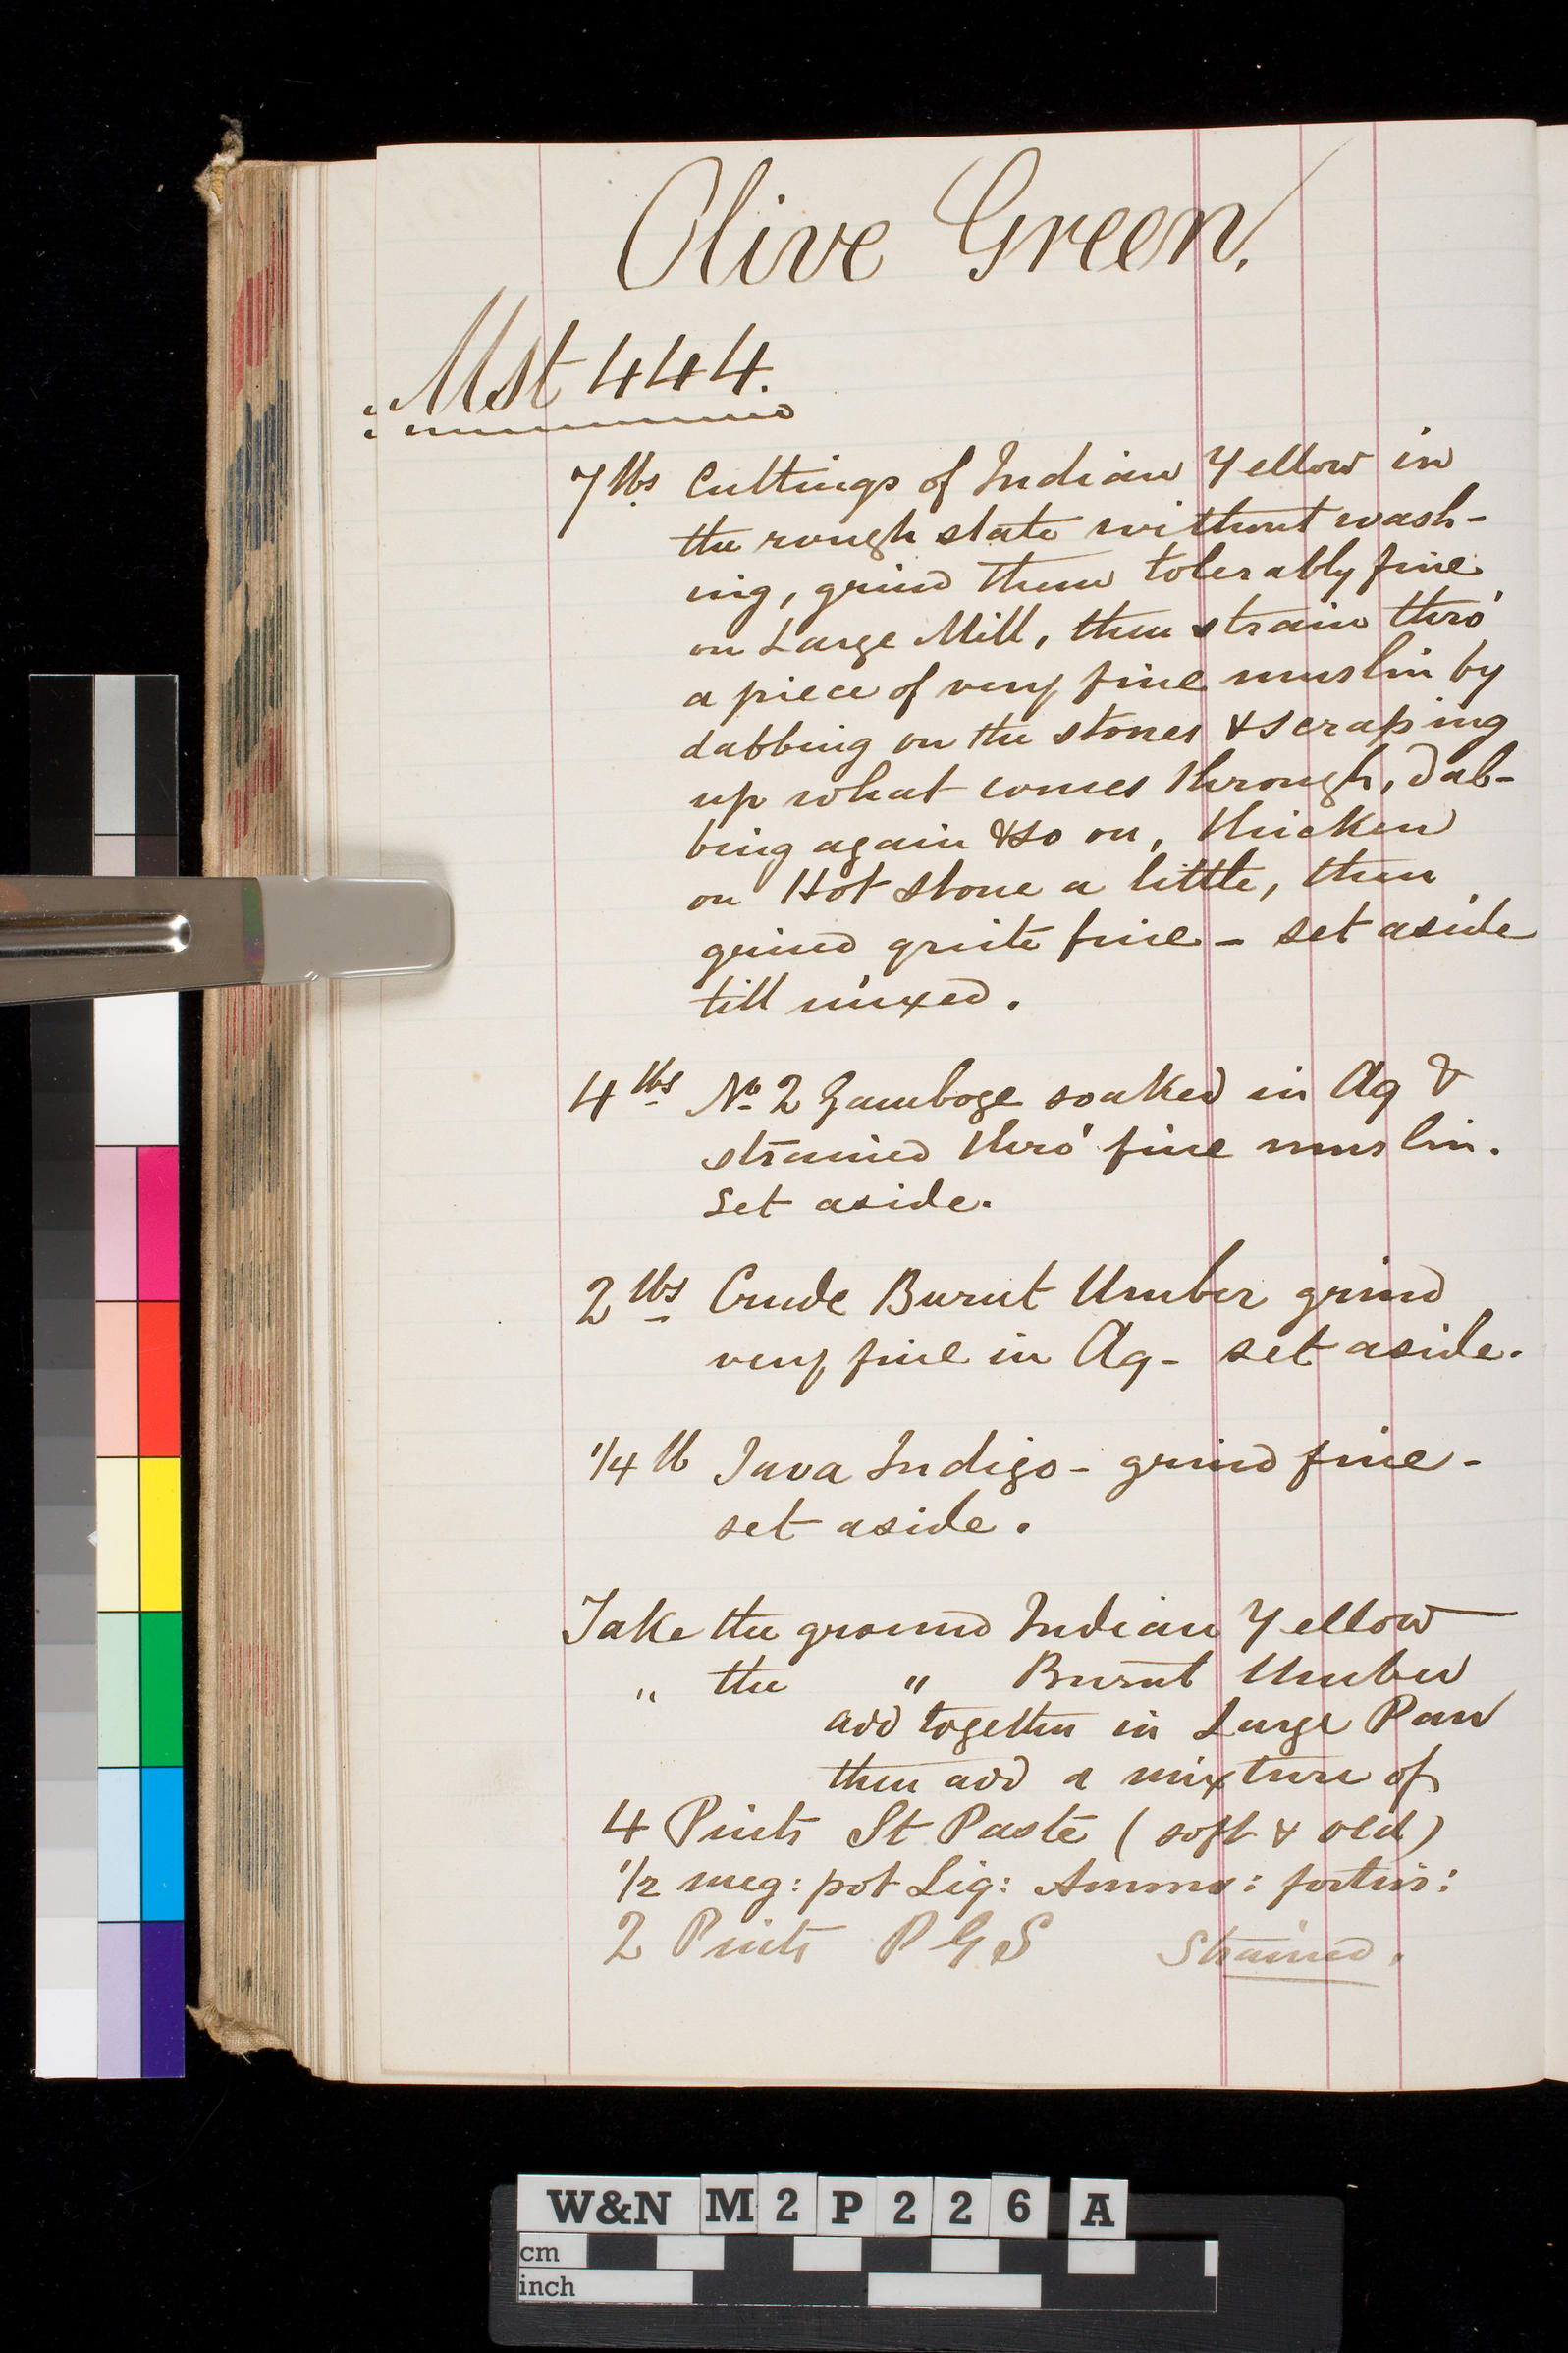 Olive Green.
Mst 444.
7 lbs Cuttings of Indian Yellow in
the rough state without wash-
ing, grind them tolerably fine
on Large Mill, then strain thro'
a piece of very fine muslin by
dabbing on the stones & scraping
up what comes through, dab-
bing again & so on, thicken
on Hot stone a little, then
grind quite fine - set aside
till mixed.
4 lbs No 2 Gamboge soaked in Aq &
strained thro' fine muslin.
Set aside.
2 lbs Crude Burnt Umber grind
very fine in Aq - set aside.
1/4 lb Java Indigo - grind fine -
set aside.
Take the ground Indian Yellow
" the " Burnt Umber
add together in Large Pan
then add a mixture of
4 Pints St Paste (soft & old)
1/2 meg: pot Liq: Ammo: fortis:
2 Pints P G S Strained.
W&N M2P226 A
cm
inch